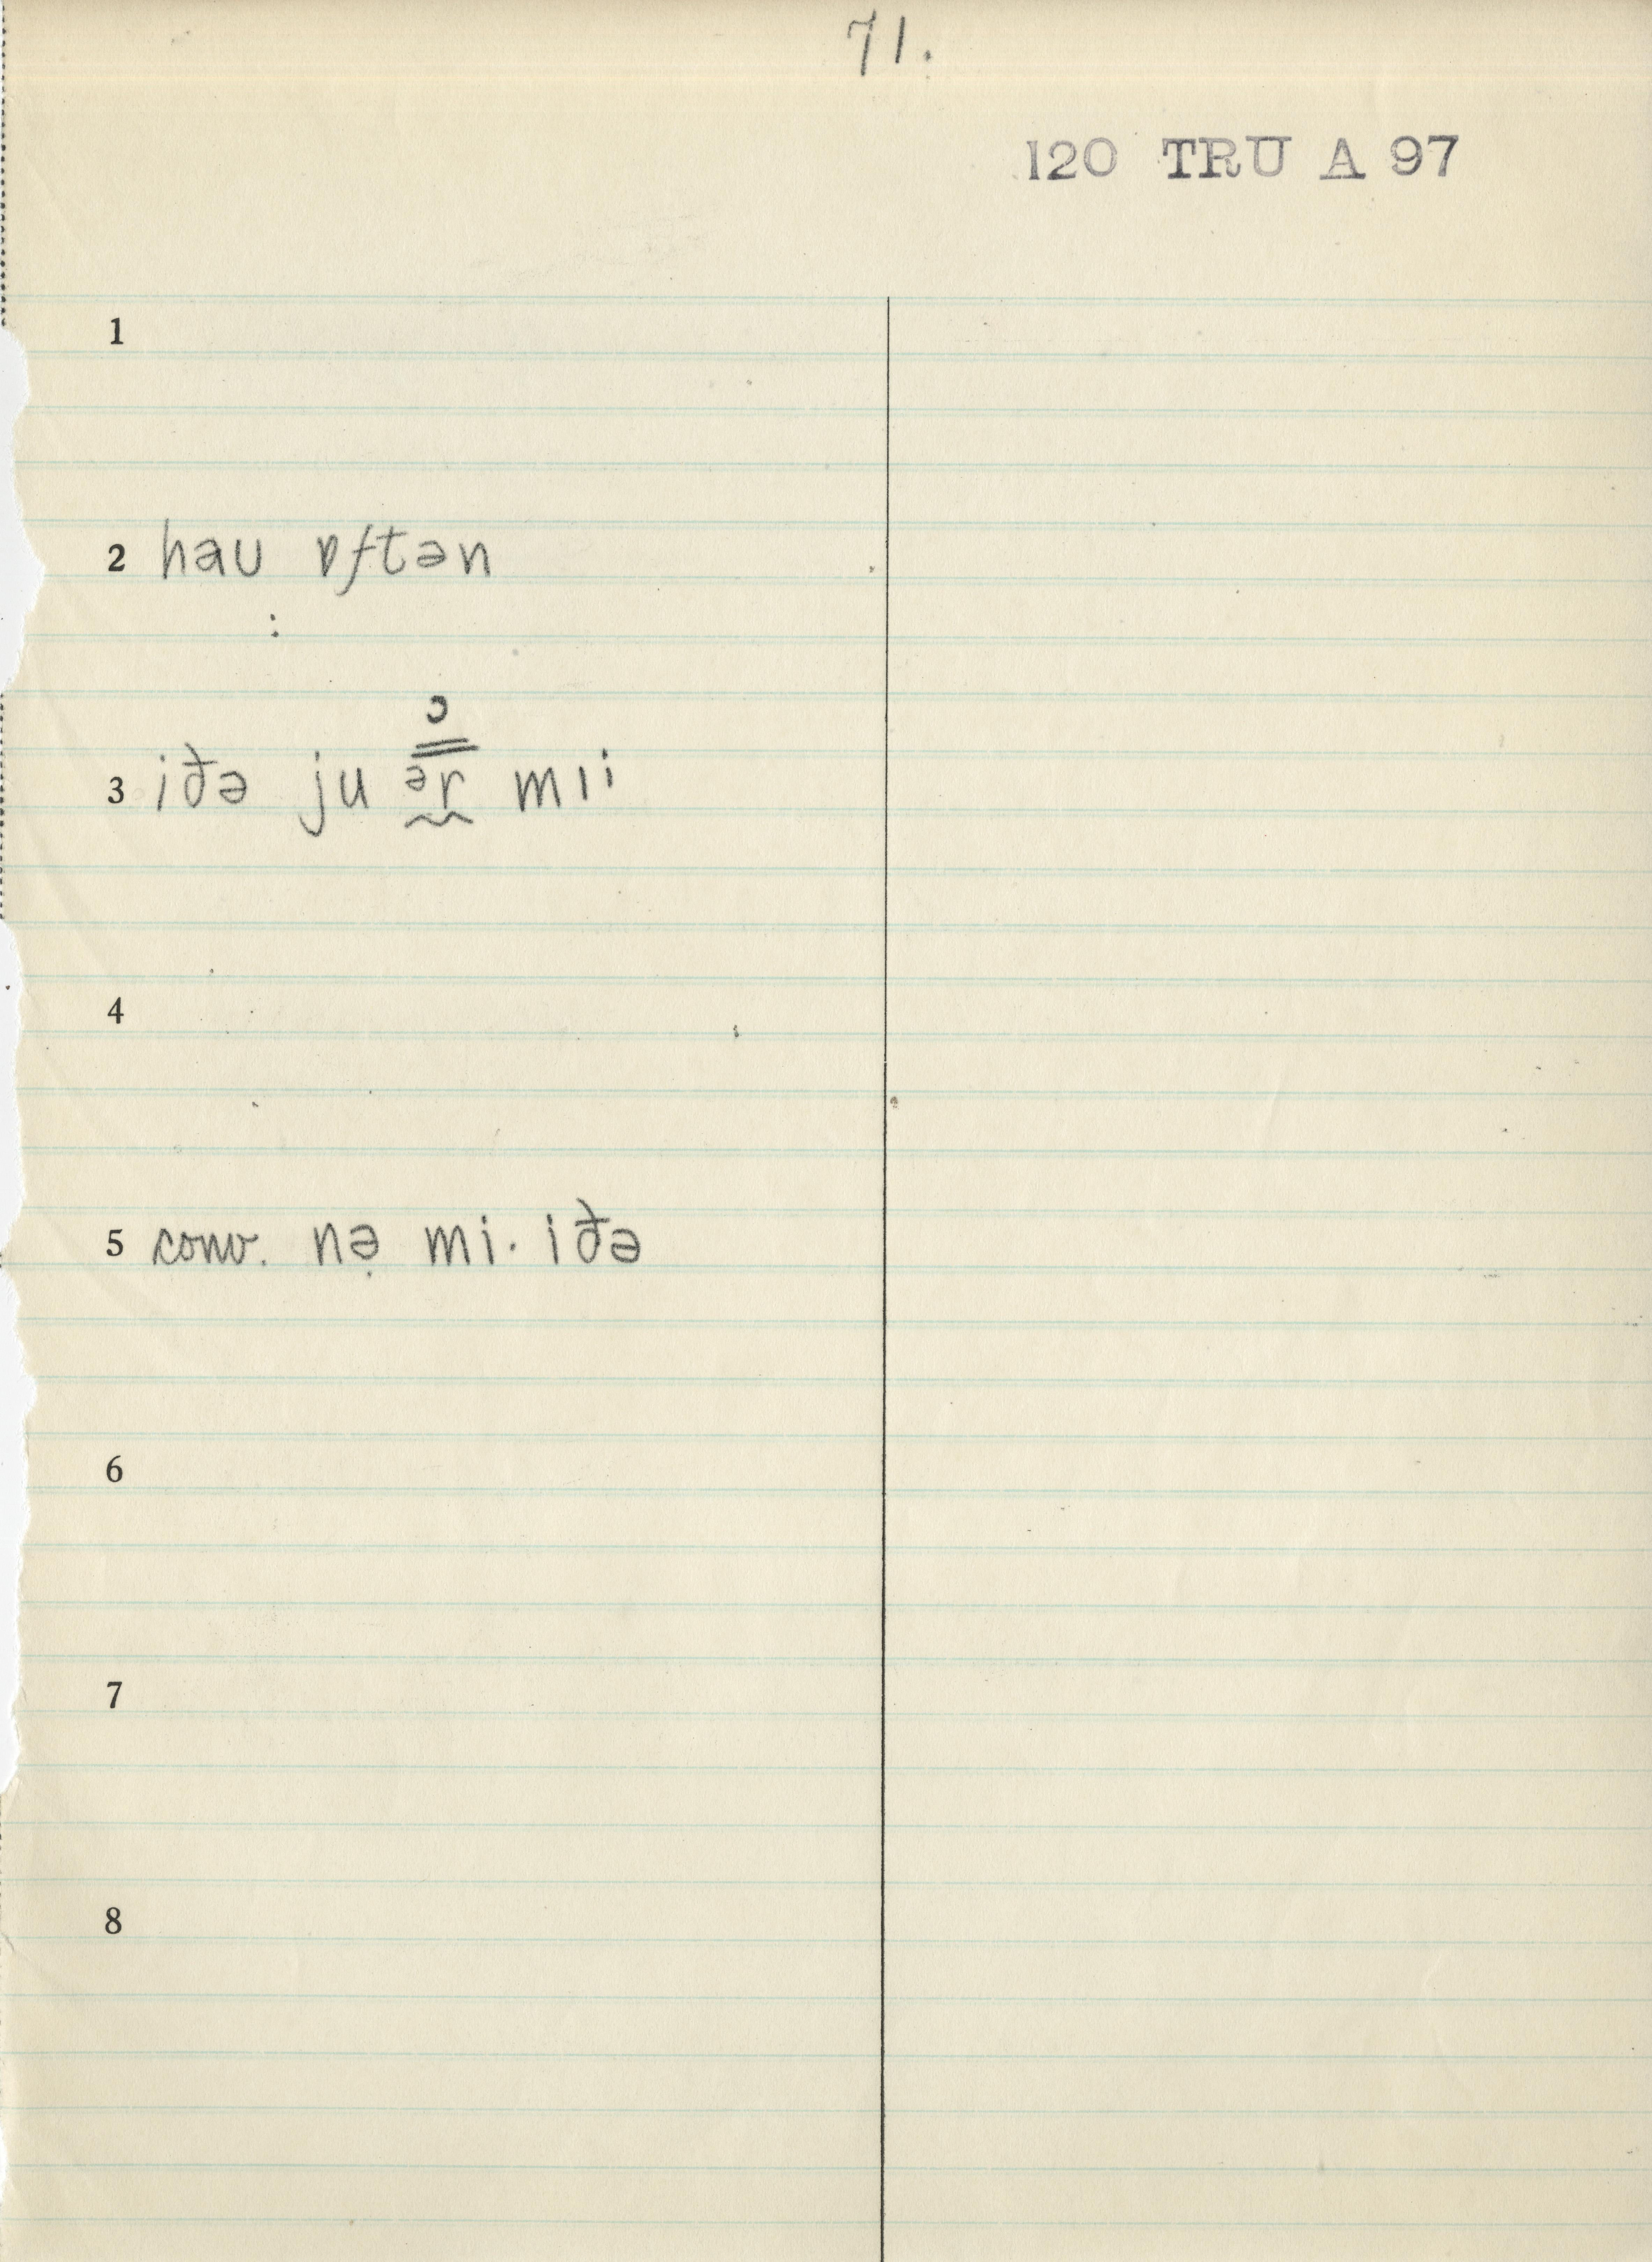 71.
120 TRU A 97
1
2 hau ɒftən
:
ɔ
3 iðə ju ər mɪi
4
5 conv. nə̣ mi· iðə
6
7
8